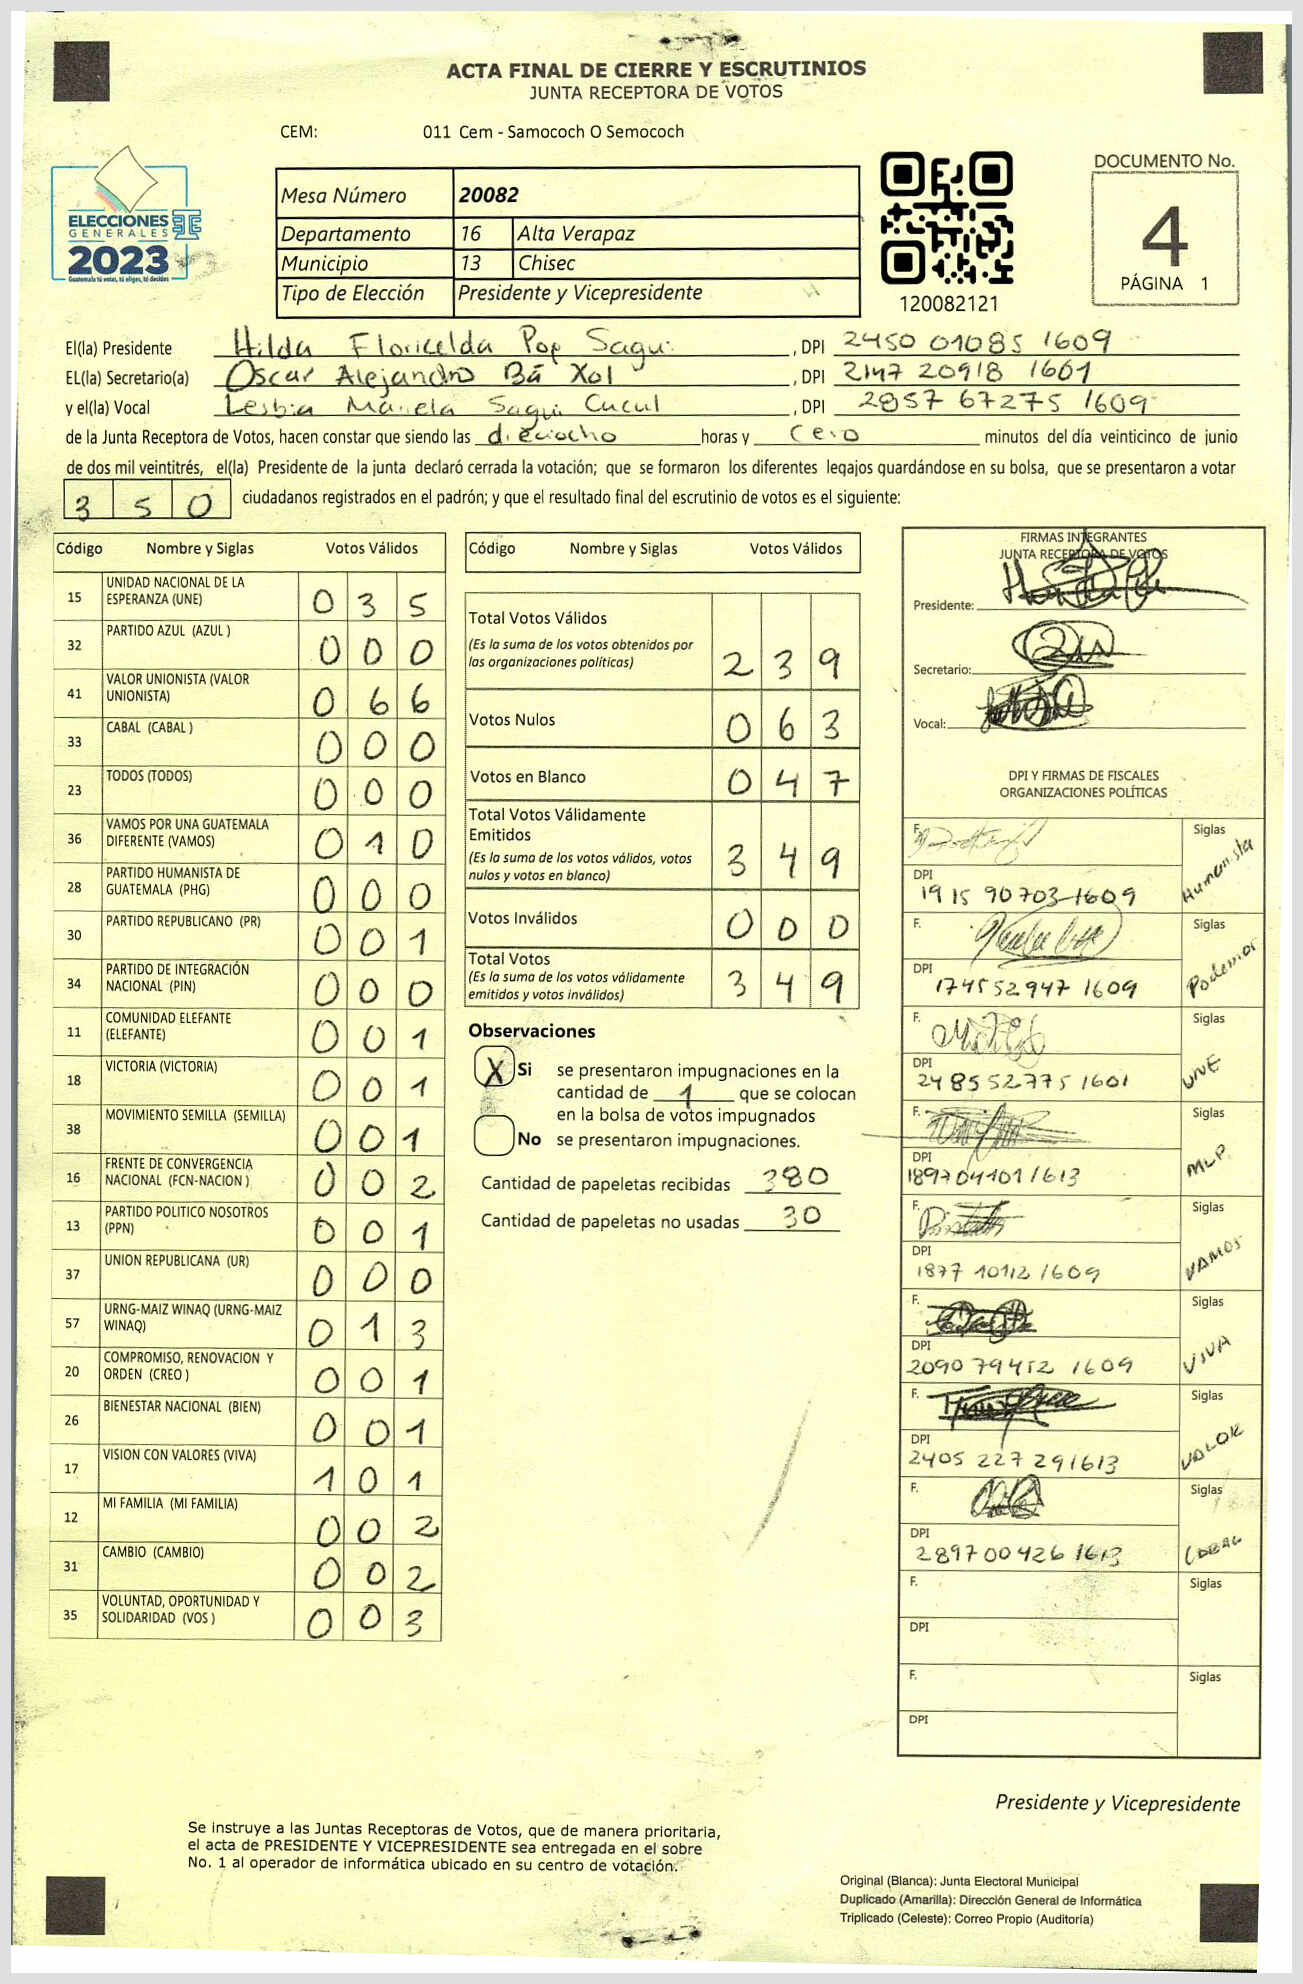 ACTA FINAL DE CIERRE Y ESCRUTINIOS
JUNTA RECEPTORA DE VOTOS
CEM: 011 Cem - Samococh O Semococh
ELECCIONES
GENERALES
2023
Guatemala tú votas, tú eliges, tú decides
TE
Mesa Número 20082
Departamento 16 Alta Verapaz
Municipio 13 Chisec
Tipo de Elección Presidente y Vicepresidente
120082121
DOCUMENTO No.
4
PÁGINA 1
El(la) Presidente Hilda Floricelda Pop Sagui , DPI 2450 01085 1609
EL(la) Secretario(a) Oscar Alejandro Bá Xol , DPI 2147 20918 1601
y el(la) Vocal Lesbia Mariela Sagui Cucul , DPI 2857 67275 1609
de la Junta Receptora de Votos, hacen constar que siendo las dieciocho horas y cero minutos del día veinticinco de junio
de dos mil veintitrés, el(la) Presidente de la junta declaró cerrada la votación; que se formaron los diferentes legajos guardándose en su bolsa, que se presentaron a votar
3 5 0 ciudadanos registrados en el padrón; y que el resultado final del escrutinio de votos es el siguiente:
Código Nombre y Siglas Votos Válidos
15 UNIDAD NACIONAL DE LA ESPERANZA (UNE) 0 3 5
32 PARTIDO AZUL (AZUL ) 0 0 0
41 VALOR UNIONISTA (VALOR UNIONISTA) 0 6 6
33 CABAL (CABAL ) 0 0 0
23 TODOS (TODOS) 0 0 0
36 VAMOS POR UNA GUATEMALA DIFERENTE (VAMOS) 0 1 0
28 PARTIDO HUMANISTA DE GUATEMALA (PHG) 0 0 0
30 PARTIDO REPUBLICANO (PR) 0 0 1
34 PARTIDO DE INTEGRACIÓN NACIONAL (PIN) 0 0 0
11 COMUNIDAD ELEFANTE (ELEFANTE) 0 0 1
18 VICTORIA (VICTORIA) 0 0 1
38 MOVIMIENTO SEMILLA (SEMILLA) 0 0 1
16 FRENTE DE CONVERGENCIA NACIONAL (FCN-NACION ) 0 0 2
13 PARTIDO POLITICO NOSOTROS (PPN) 0 0 1
37 UNION REPUBLICANA (UR) 0 0 0
57 URNG-MAIZ WINAQ (URNG-MAIZ WINAQ) 0 1 3
20 COMPROMISO, RENOVACION Y ORDEN (CREO ) 0 0 1
26 BIENESTAR NACIONAL (BIEN) 0 0 1
17 VISION CON VALORES (VIVA) 1 0 1
12 MI FAMILIA (MI FAMILIA) 0 0 2
31 CAMBIO (CAMBIO) 0 0 2
35 VOLUNTAD, OPORTUNIDAD Y SOLIDARIDAD (VOS ) 0 0 3
Código Nombre y Siglas Votos Válidos
Total Votos Válidos 2 3 9
(Es la suma de los votos obtenidos por
las organizaciones políticas)
Votos Nulos 0 6 3
Votos en Blanco 0 4 7
Total Votos Válidamente
Emitidos 3 4 9
(Es la suma de los votos válidos, votos
nulos y votos en blanco)
Votos Inválidos 0 0 0
Total Votos 3 4 9
(Es la suma de los votos válidamente
emitidos y votos inválidos)
Observaciones
X Si se presentaron impugnaciones en la
cantidad de 1 que se colocan
en la bolsa de votos impugnados
No se presentaron impugnaciones.
Cantidad de papeletas recibidas 380
Cantidad de papeletas no usadas 30
FIRMAS INTEGRANTES
JUNTA RECEPTORA DE VOTOS
Presidente:
Secretario:
Vocal:
DPI Y FIRMAS DE FISCALES
ORGANIZACIONES POLÍTICAS
F. Siglas Humanista
DPI
1915 90703 1609
F. Siglas Podemos
DPI
174552947 1609
F. Siglas UNE
DPI
248552775 1601
F. Siglas MLP
DPI
189704101 1613
F. Siglas VAMOS
DPI
1877 10112 1609
F. Siglas VIVA
DPI
2090 79452 1609
F. Siglas VALOR
DPI
2405 227 291613
F. Siglas
DPI
289700426 1613
F. Siglas
DPI
F. Siglas
DPI
Presidente y Vicepresidente
Se instruye a las Juntas Receptoras de Votos, que de manera prioritaria,
el acta de PRESIDENTE Y VICEPRESIDENTE sea entregada en el sobre
No. 1 al operador de informática ubicado en su centro de votación.
Original (Blanca): Junta Electoral Municipal
Duplicado (Amarilla): Dirección General de Informática
Triplicado (Celeste): Correo Propio (Auditoría)